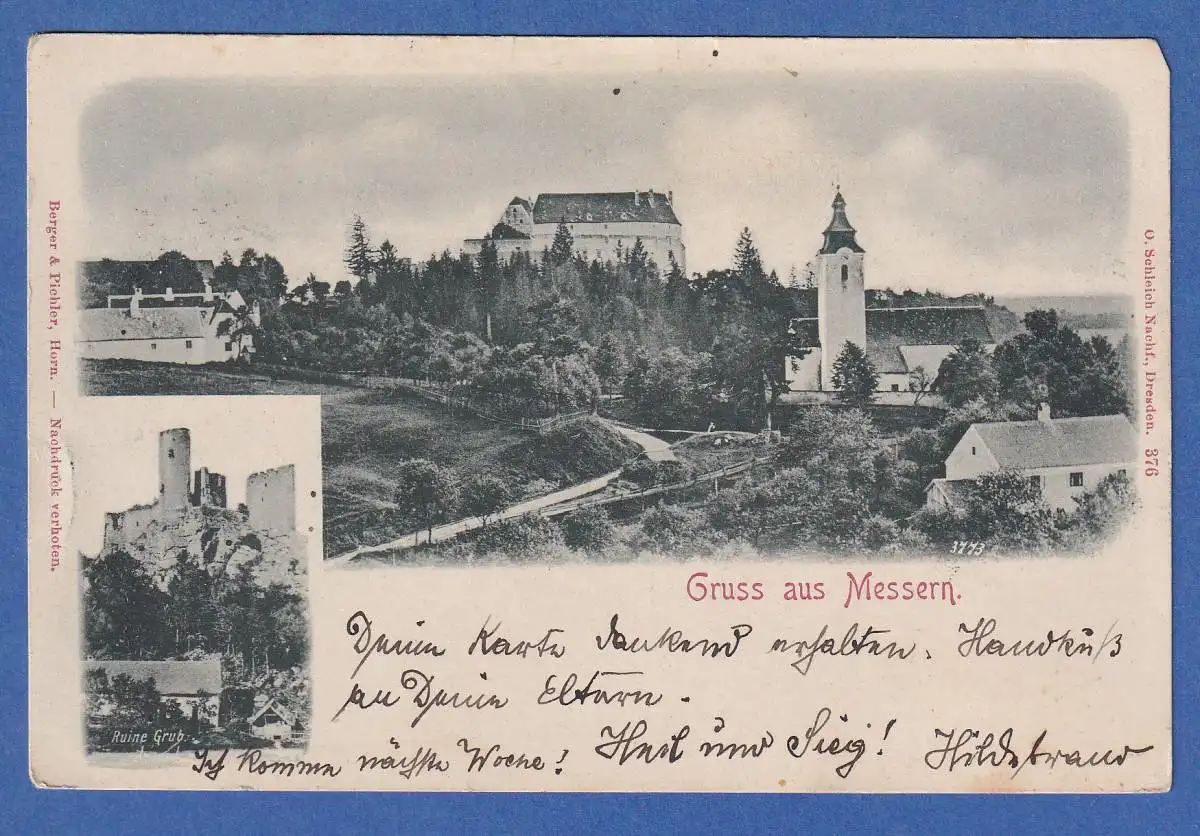 Berger & Pichler, Horn. — Nachdruck verboten.
O. Schleich Nachf., Dresden. 376
3773
Ruine Grub.
Gruss aus Messern.
Deine Karte dankend erhalten. Handkuß
an Deine Eltern.
Heil und Sieg! Hildebrand
Ich komme nächste Woche!